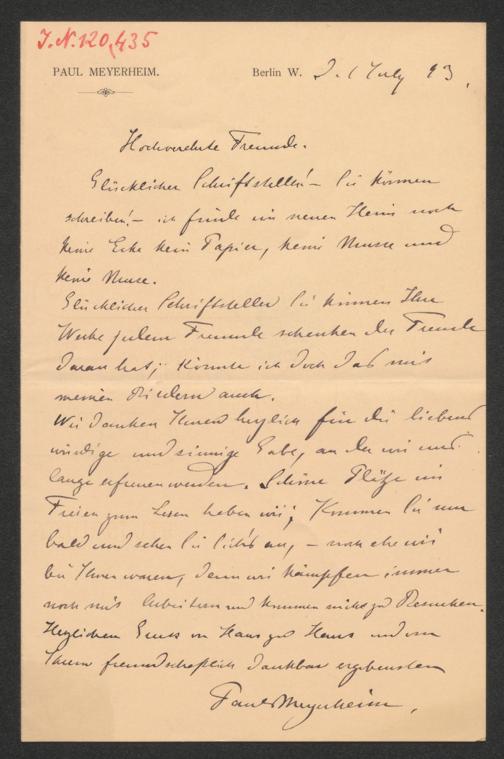 J.N.120,435
PAUL MEYERHEIM.
Berlin W. 2. July 93.
Hochverehrte Freunde.
Glücklicher Schriftsteller! – Sie können
schreiben! – ich finde im neuen Heim noch
keine Ecke kein Papier, keine Musse und
keine Muse.
Glücklicher Schriftsteller Sie können Ihre
Werke jedem Freunde schenken der Freude
daran hat; könnte ich doch das mit
meinen Bildern auch.
Wir danken Ihnen herzlich für die liebens
würdige und sinnige Gabe, an der wir uns
lange erfreuen werden. Schöne Plätze im
Freien zum Lesen haben wir; Kommen Sie nur
bald und sehen Sie sich's an, – noch ehe wir
bei Ihnen waren, denn wir kämpfen immer
noch mit Arbeitern und kommen nicht zu Besuchen.
Herzlichen Gruss von Haus zu Haus und von
Ihrem freundschaftlich dankbar ergebensten
Paul Meyerheim.